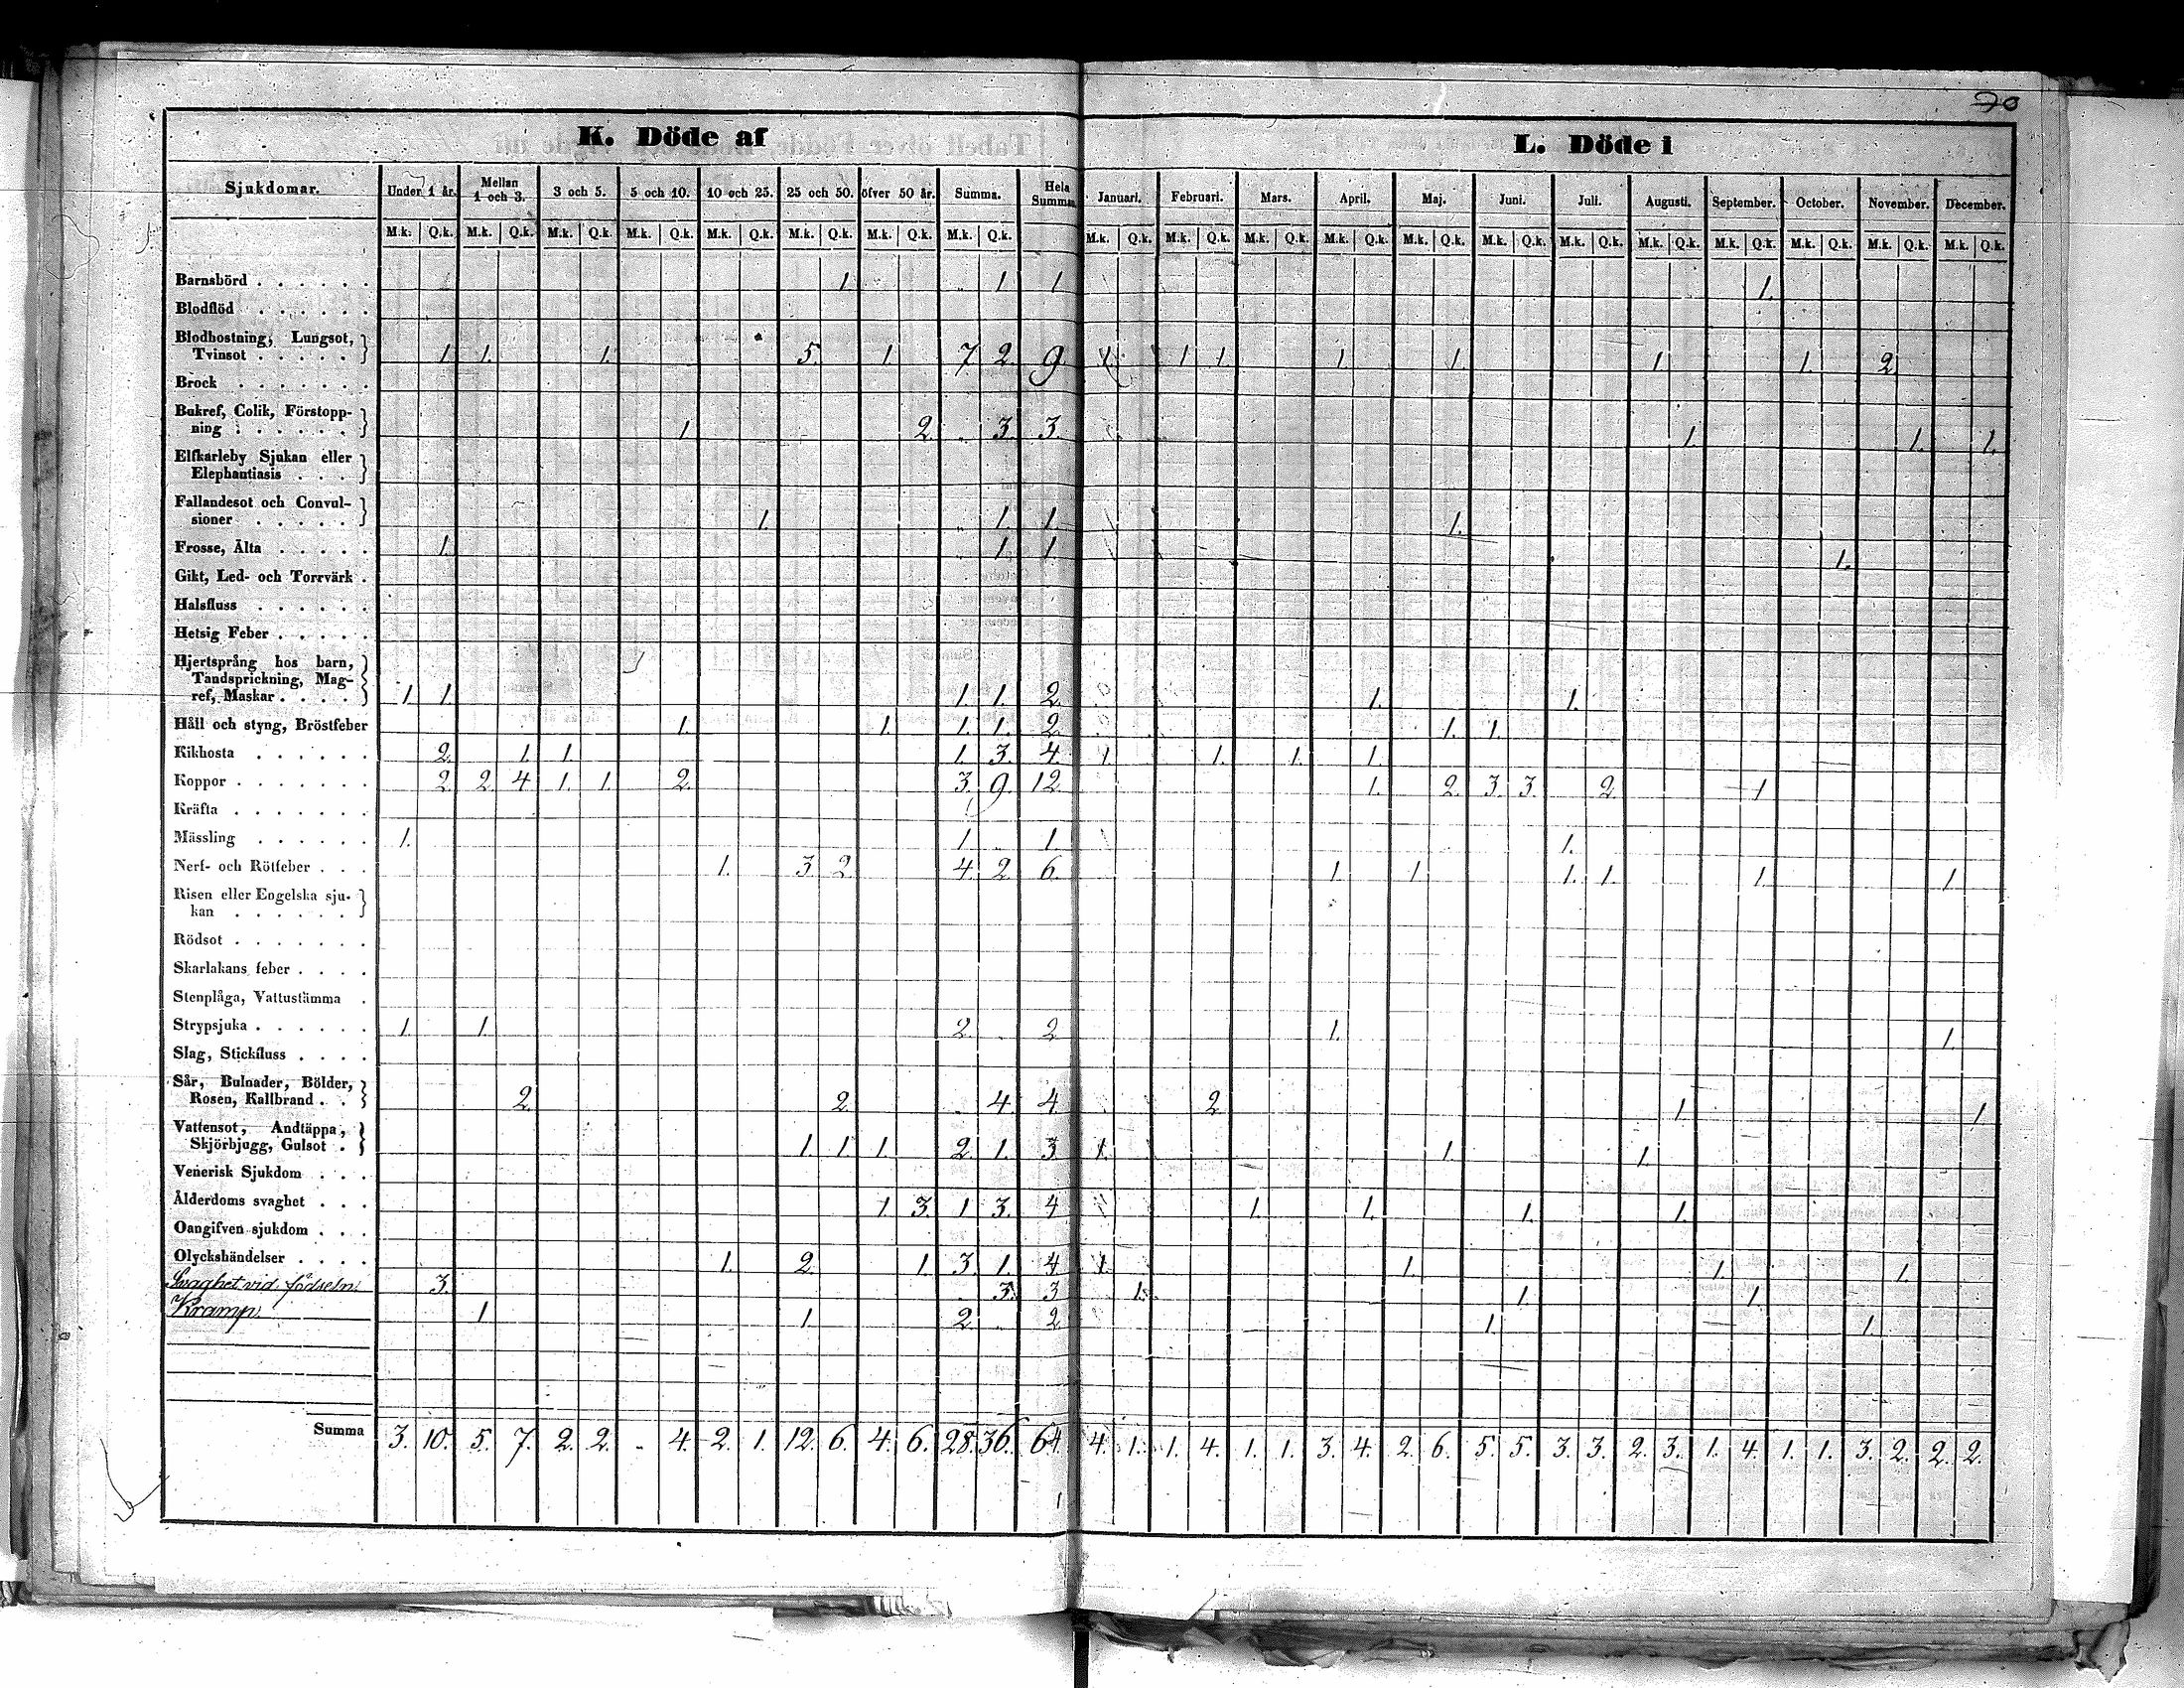 70
K. Döde af
L. Döde i
Sjukdomar. Under 1 år. Mellan 1 och 3. 3 och 5. 5 och 10. 10 och 25. 25 och 50. öfver 50 år. Summa. Hela Summan Januari. Februari. Mars. April. Maj. Juni. Juli. Augusti. September. October. November. December.
M.k. Q.k. M.k. Q.k. M.k. Q.k. M.k. Q.k. M.k. Q.k. M.k. Q.k. M.k. Q.k. M.k. Q.k. M.k. Q.k. M.k. Q.k. M.k. Q.k. M.k. Q.k. M.k. Q.k. M.k. Q.k. M.k. Q.k. M.k. Q.k. M.k. Q.k. M.k. Q.k. M.k. Q.k. M.k. Q.k.
Barnsbörd . . . . . . 1 1 1 1.
Blodflöd . . . . . .
Blodhostning, Lungsot,
Tvinsot . . . . . 1. 1. 1. 5. 1. 7 2. 9. 1. 1 1. 1. 1. 1. 1. 2
Brock . . . . . . .
Bukref, Colik, Förstopp-
ning . . . . . . 1. 2 3. 3. 1. 1. 1.
Elfkarleby Sjukan eller
Elephantiasis . . .
Fallandesot och Convul-
sioner . . . . . 1. 1. 1. 1.
Frosse, Älta . . . . . 1. 1. 1 1.
Gikt, Led- och Torrvärk .
Halsfluss . . . . . .
Hetsig Feber . . . . .
Hjertsprång hos barn,
Tandsprickning, Mag-
ref, Maskar . . . . 1. 1. 1. 1. 2. 1. 1.
Håll och styng, Bröstfeber 1. 1. 1. 1. 2. 1. 1.
Kikhosta . . . . . . 2. 1. 1. 1. 3. 4. 1 1. 1. 1.
Koppor . . . . . . . 2. 2. 4 1. 1. 2. 3. 9. 12. 1. 2. 3. 3. 2. 1
Kräfta . . . . . . .
Mässling . . . . . . 1. 1. 1. 1.
Nerf- och Rötfeber . . . 1. 3 2 4. 2. 6. 1. 1 1. 1. 1. 1.
Risen eller Engelska sju-
kan . . . . . .
Rödsot . . . . . . .
Skarlakans feber . . . .
Stenplåga, Vattustämma .
Strypsjuka . . . . . . 1. 1. 2. 2 1. 1.
Slag, Stickfluss . . . .
Sår, Bulnader, Bölder,
Rosen, Kallbrand . . 2. 2. 4 4 2. 1 1
Vattensot, Andtäppa,
Skjörbjugg, Gulsot . 1. 1 1. 2. 1. 3. 1. 1. 1.
Venerisk Sjukdom . . .
Ålderdoms svaghet . . . 1 3. 1 3. 4 1. 1. 1. 1.
Oangifven sjukdom . . .
Olyckshändelser . . . . 1. 2. 1. 3. 1. 4 1. 1. 1. 1.
Svaghet vid födseln. 3. 3. 3 1. 1. 1.
Kramp. 1 1. 2. 2. 1. 1.
Summa 3. 10. 5. 7. 2. 2. - 4. 2. 1. 12. 6. 4. 6. 28. 36. 64. 4. 1. 1. 4. 1. 1. 3. 4. 2. 6. 5. 5. 3. 3. 2. 3. 1. 4. 1. 1. 3. 2. 2. 2.